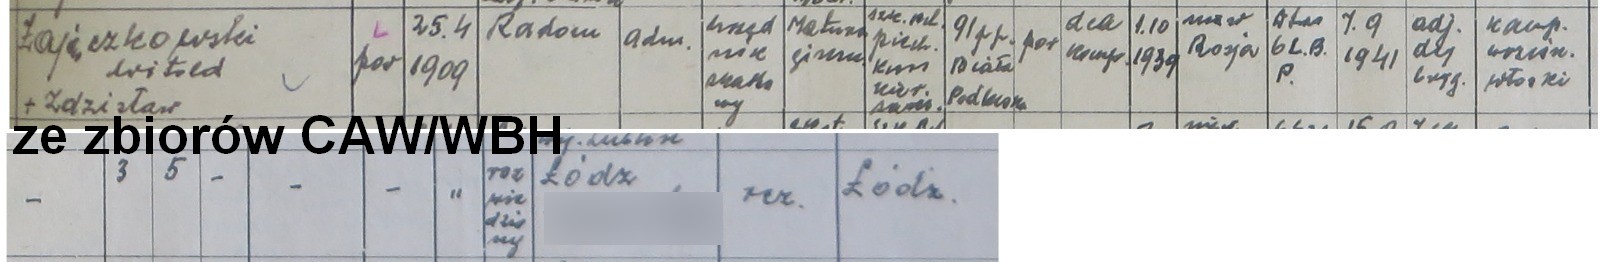 Zajączkowski
Witold
+ Zdzisław
L
por
25.4
1909
Radom
adm.
urzęd
nik
skarbo
wy
Matura
gimn.
piech.
kurs
9/pp.
Biała
Podlaska
por
dca
komp.
1.10
1939
niew
Rosja
6 L.B.
P.
7.9
1941
adj.
dcy
bryg.
kamp.
włoski
ze zbiorów CAW/WBH
-
3
5
-
-
-
"
roz
wie
dzio
ny
Łódź
rez.
Łódź.